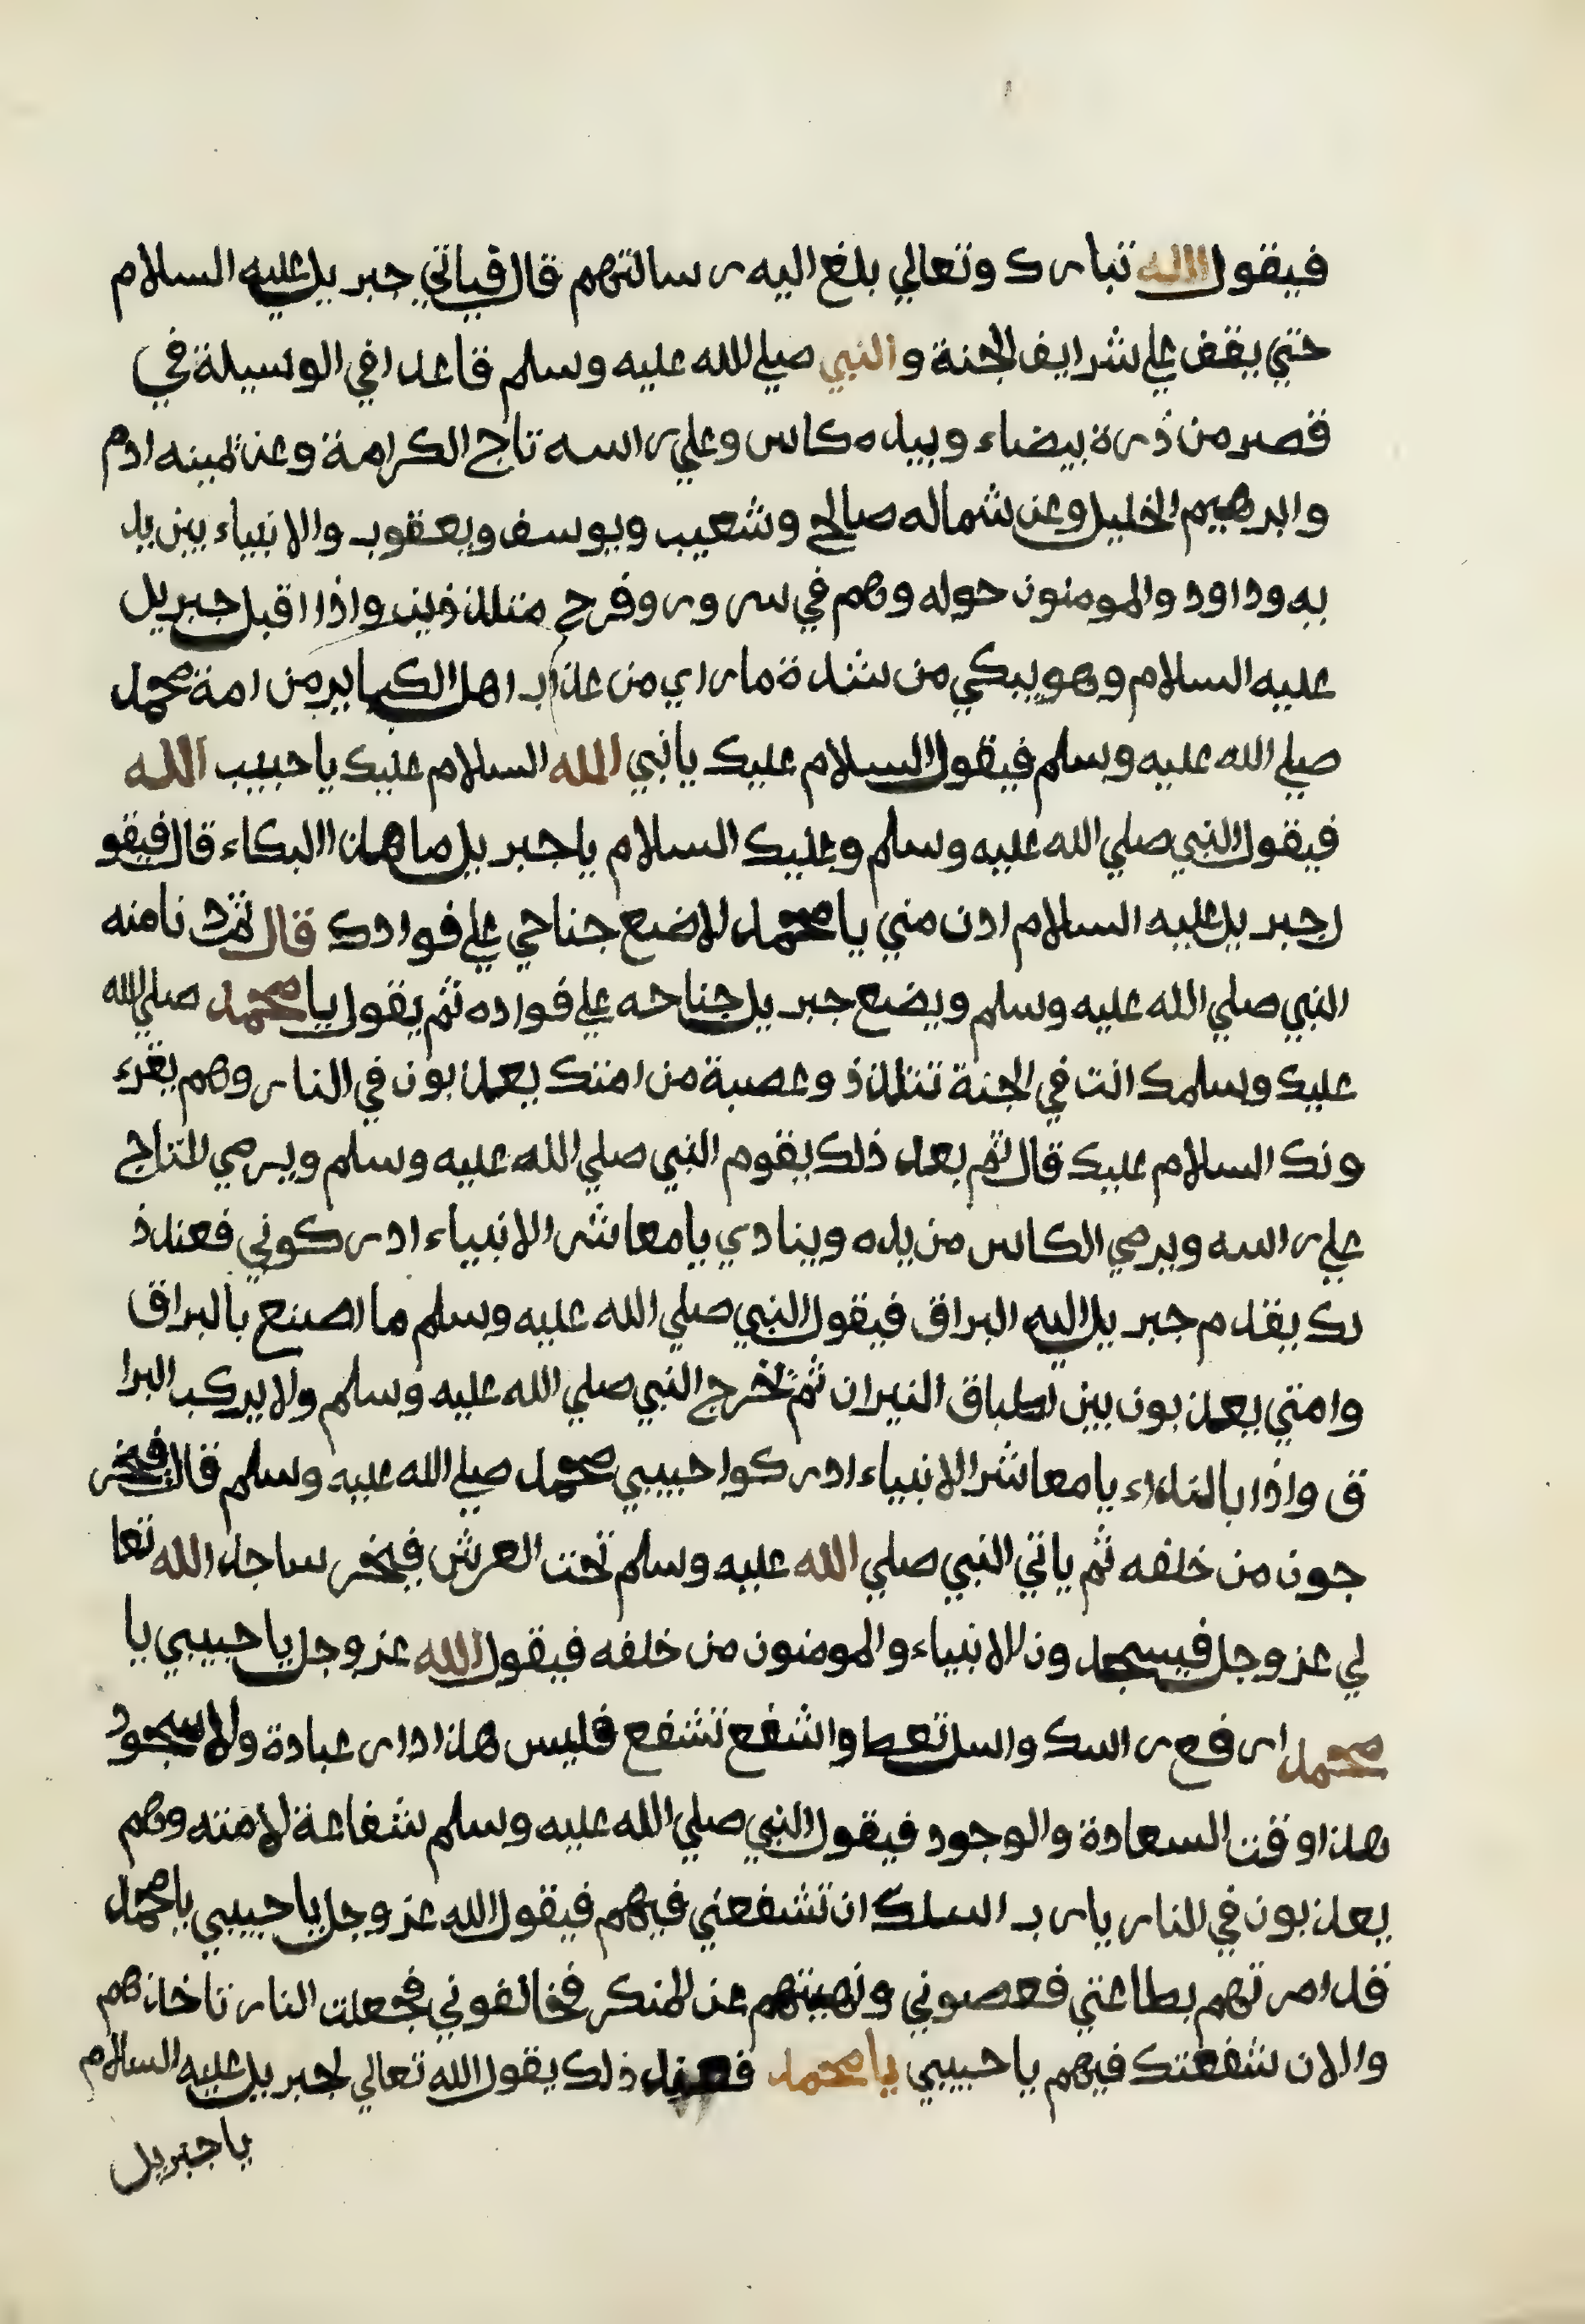 فيقول الله تبارك وتعالي بلغ اليه رسالتهم قال فياتي جبريل عليه السلام
حتي يقف علي شرايف الجنة والنبي صلي الله عليه وسلم قاعدا في الوسيلة في
قصر من ذرة بيضاء وبيده كاس وعلي راسه تاج الكرامة وعن يمينه ادم
وابرهيم الخليل وعن شماله صالح وشعيب ويوسف ويعقوب والانبياء بين يد
يه وداود والمومنون حوله وهم في سرور وفرح متلذذين واذا اقبل جبريل
عليه السلام وهو يبكي من شدة ما راي من عذاب اهل الكباير من امة محمد
صلي الله عليه وسلم فيقول السلام عليك يا نبي الله السلام عليك يا حبيب الله
فيقول النبي صلي الله عليه وسلم وعليك السلام يا جبريل ما هذا البكاء قال فيقو
ل جبريل عليه السلام ادن مني يا محمد لاضع جناحي علي فوادك قال ثم دنا منه
النبي صلي الله عليه وسلم ويضع جبريل جناحه علي فواده ثم يقول يا محمد صلي الله
عليك وسلمك انت في الجنة تتلذذ وعصبة من امتك يعذبون في النار وهم يقرء
ونك السلام عليك قال ثم بعد ذلك يقوم النبي صلي الله عليه وسلم ويرمي التاج
علي راسه ويرمي الكاس من يده وينادي يا معاشر الانبياء ادركوني فعند ذ
لك يقدم جبريل اليه البراق فيقول النبي صلي الله عليه وسلم ما اصنع بالبراق
وامتي يعذبون بين اطباق النيران ثم يخرج النبي صلي الله عليه وسلم ولا يركب البرا
ق واذا بالنداء يا معاشر الانبياء ادركوا حبيبي محمد صلي الله عليه وسلم قال فيخر
جون من خلفه ثم ياتي النبي صلي الله عليه وسلم تحت العرش فيخر ساجد الله تعا
لي عز وجل فيسجدون الانبياء والمومنون من خلفه فيقول الله عز وجل يا حبيبي يا
محمد ارفع راسك واسل تعط واشفع تشفع فليس هذا دار عبادة ولا سجود
هذا وقت السعادة والوجود فيقول النبي صلي الله عليه وسلم شفاعة لامته وهم
يعذبون في النار يا رب اسلك ان تشفعني فيهم فيقول الله عز وجل يا حبيبي يا محمد
قد امرتهم بطاعتي فعصوني ونهيتهم عن المنكر فخالفوني فجعلت النار تاخذهم
والان شفعتك فيهم يا حبيبي يا محمد فعند ذلك يقول الله تعالي لجبريل عليه السلام
يا جبريل